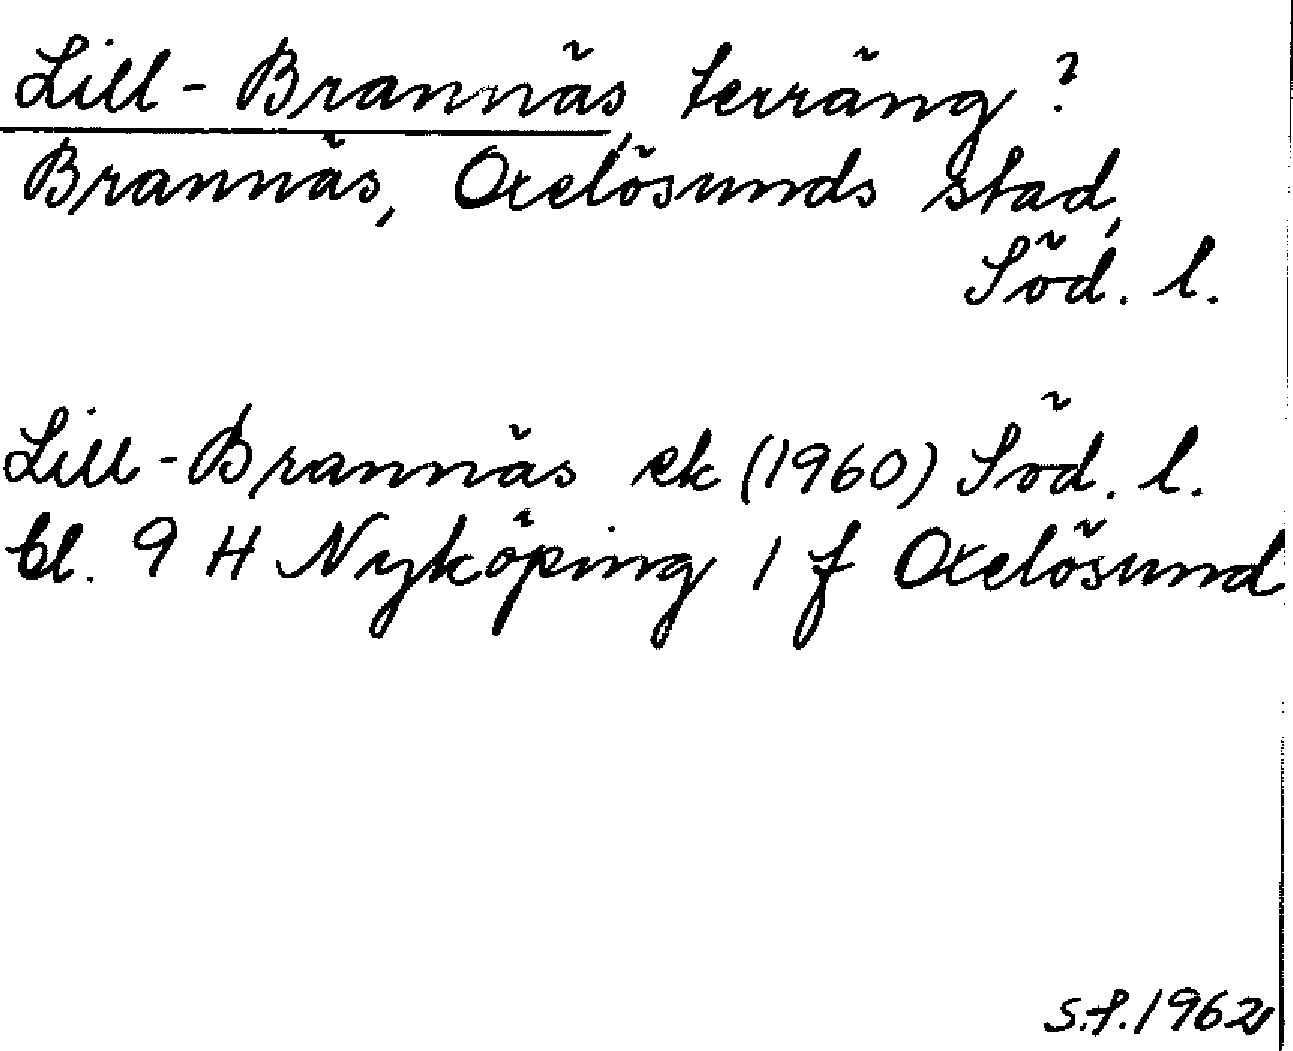 Lill-Brannäs, terräng?
Brannäs, Oxelösunds stad,
Söd. l.
Lill-Brannäs ek (1960) Söd. l.
bl. 9 H Nyköping 1 f Oxelösund
S.f. 1962